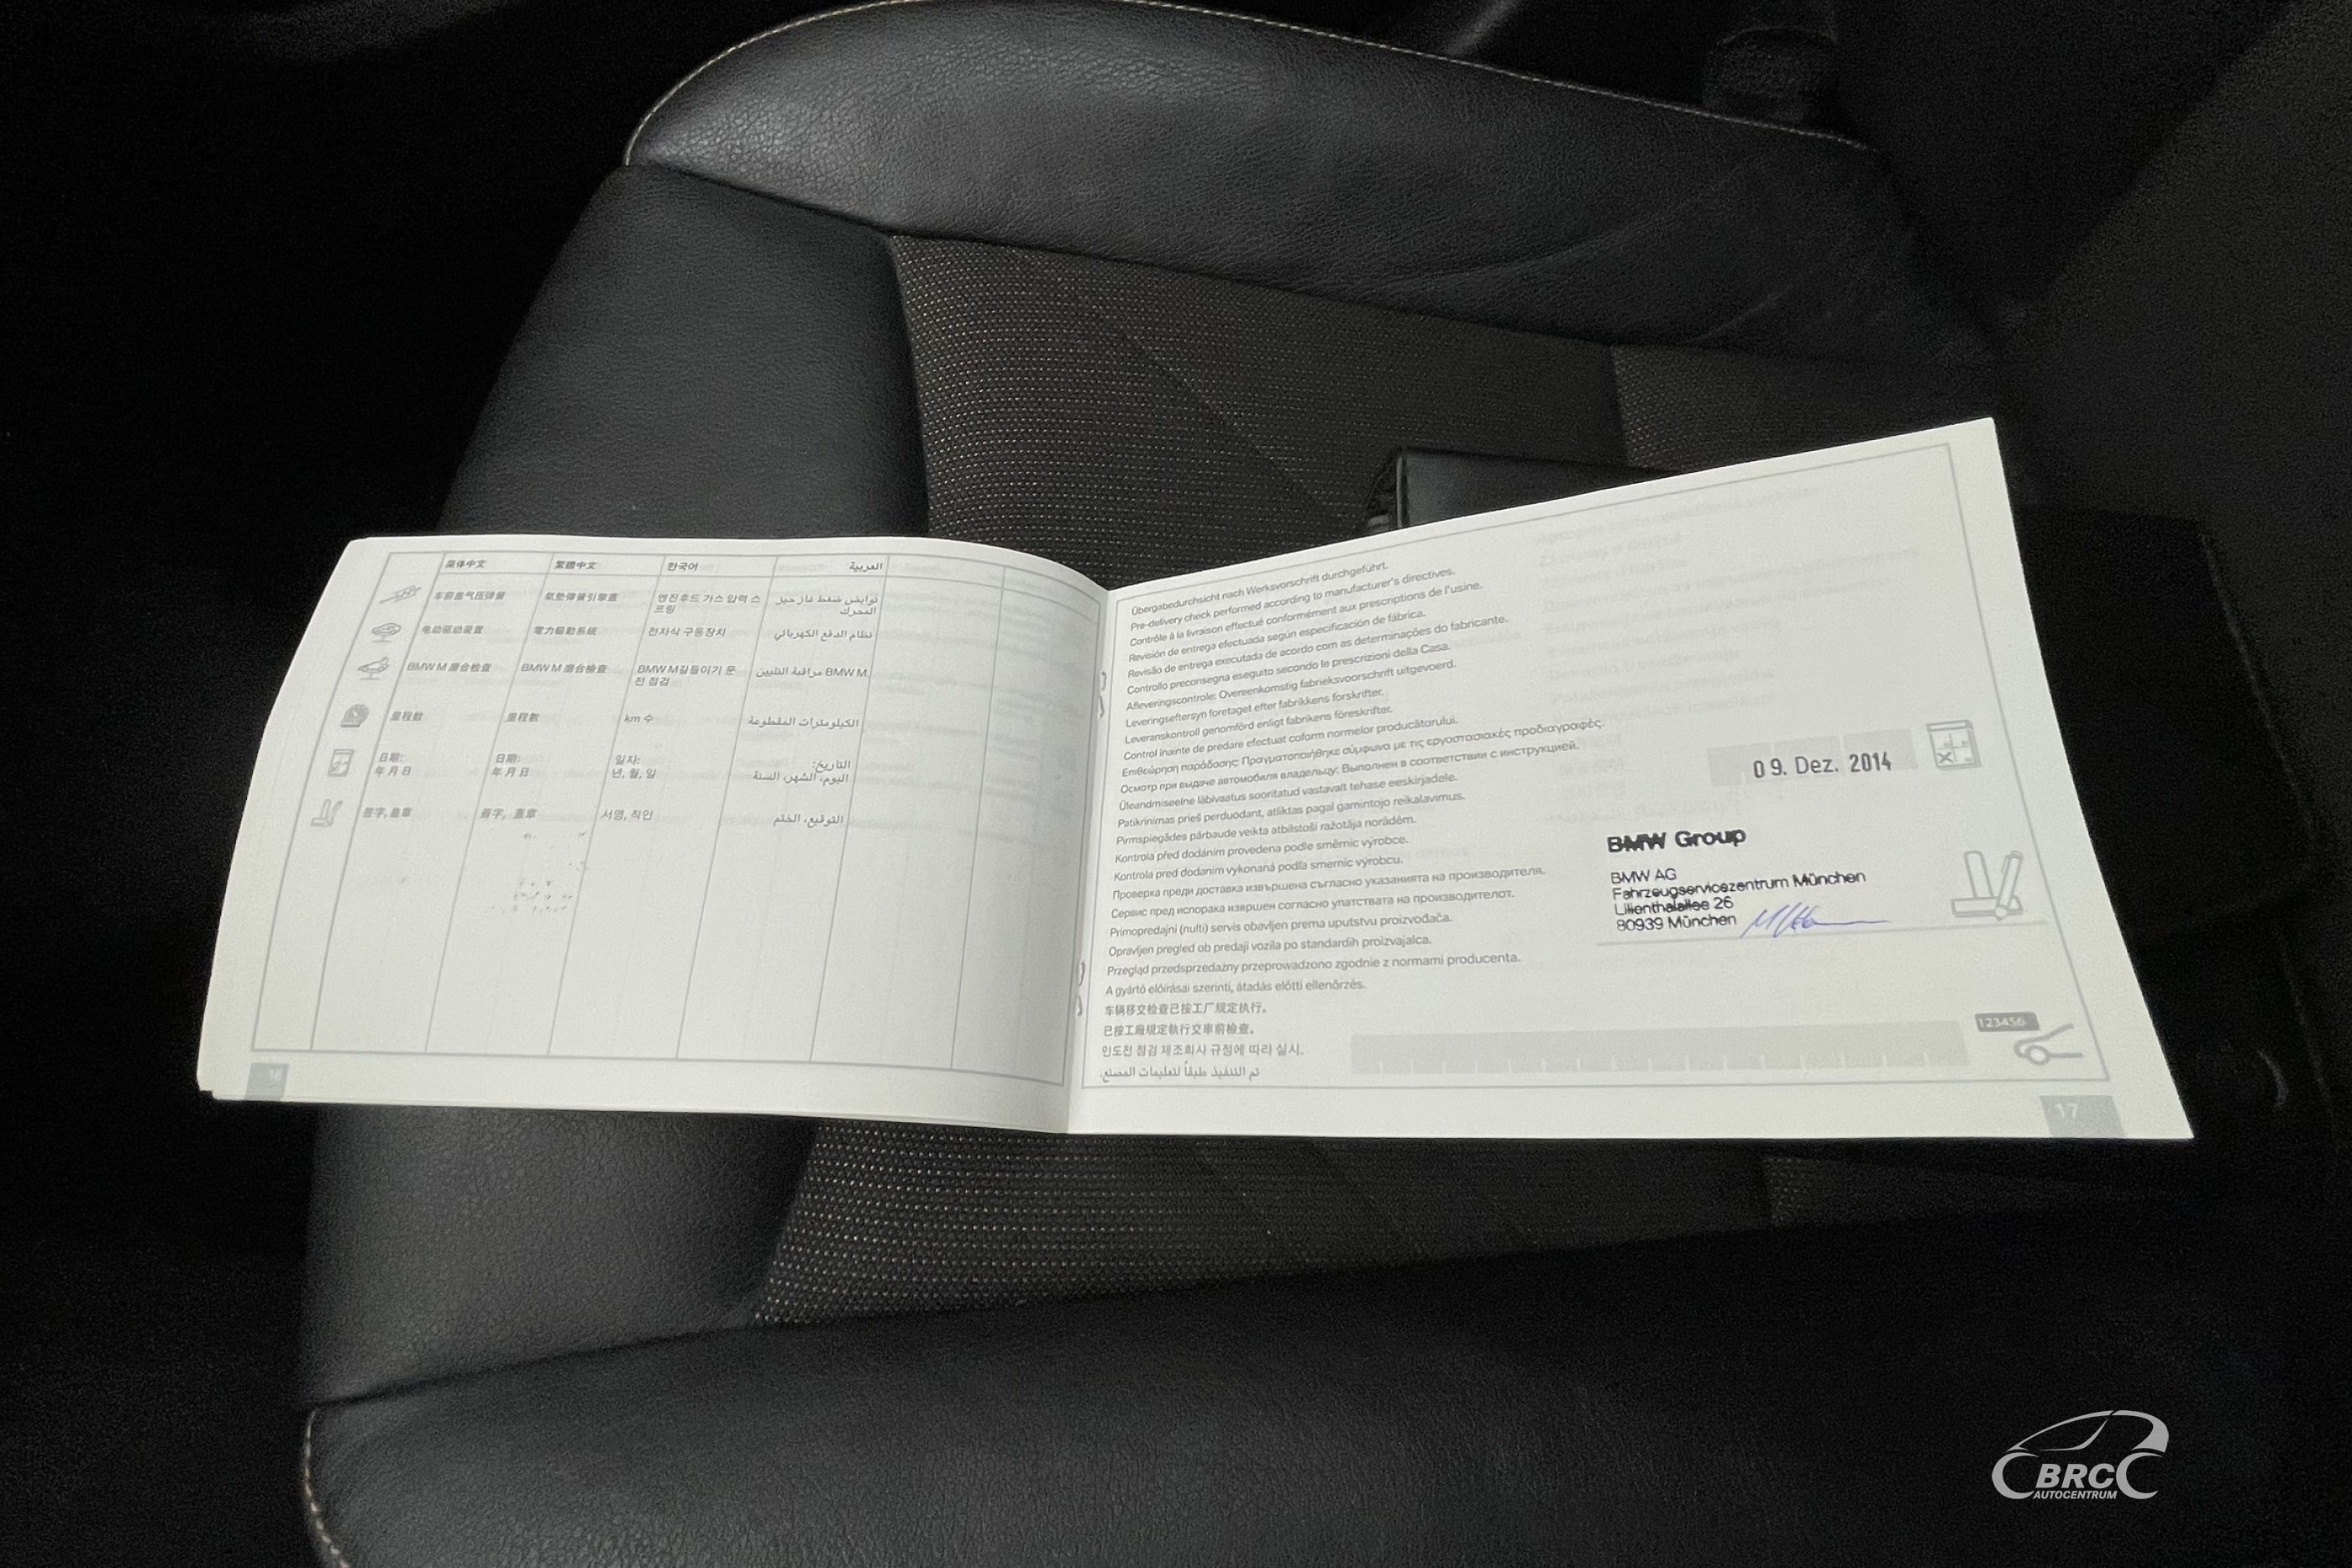 简体中文 繁體中文 한국어 العربية
车前盖气压弹簧 氣墊彈簧引擎蓋 엔진후드 가스 압력 스 نوابض ضغط غاز حيز
프링 المحرك
电动驱动装置 電力驅動系統 전자식 구동장치 نظام الدفع الكهربائي
BMW M 磨合检查 BMW M 磨合檢查 BMW M길들이기 운 BMW M مراقبة التليين
전 점검
里程数 里程數 km 수 الكيلومترات المقطوعة
日期: 日期: 일자: التاريخ:
年 月 日 年 月 日 년, 월, 일 اليوم، الشهر، السنة
签字, 盖章 簽字, 蓋章 서명, 직인 التوقيع، الختم
16
Übergabedurchsicht nach Werksvorschrift durchgeführt.
Pre-delivery check performed according to manufacturer's directives.
Contrôle à la livraison effectué conformément aux prescriptions de l'usine.
Revisión de entrega efectuada según especificación de fábrica.
Revisão de entrega executada de acordo com as determinações do fabricante.
Controllo preconsegna eseguito secondo le prescrizioni della Casa.
Afleveringscontrole: Overeenkomstig fabrieksvoorschrift uitgevoerd.
Leveringseftersyn foretaget efter fabrikkens forskrifter.
Leveranskontroll genomförd enligt fabrikens föreskrifter.
Control înainte de predare efectuat coform normelor producătorului.
Επιθεώρηση παράδοσης: Πραγματοποιήθηκε σύμφωνα με τις εργοστασιακές προδιαγραφές.
Осмотр при выдаче автомобиля владельцу: Выполнен в соответствии с инструкцией.
Üleandmiseelne läbivaatus sooritatud vastavalt tehase eeskirjadele.
Patikrinimas prieš perduodant, atliktas pagal gamintojo reikalavimus.
Pirmspiegādes pārbaude veikta atbilstoši ražotāja norādēm.
Kontrola před dodáním provedena podle směrnic výrobce.
Kontrola pred dodaním vykonaná podľa smerníc výrobcu.
Проверка преди доставка извършена съгласно указанията на производителя.
Сервис пред испорака извршен согласно упатствата на производителот.
Primopredajni (nulti) servis obavljen prema uputstvu proizvođača.
Opravljen pregled ob predaji vozila po standardih proizvajalca.
Przegląd przedsprzedażny przeprowadzono zgodnie z normami producenta.
A gyártó előírásai szerinti, átadás előtti ellenőrzés.
车辆移交检查已按工厂规定执行。
已按工廠規定執行交車前檢查。
인도전 점검 제조회사 규정에 따라 실시.
تم التنفيذ طبقاً لتعليمات المصنع.
09. Dez. 2014
BMW Group
BMW AG
Fahrzeugservicezentrum München
Lilienthalallee 26
80939 München
123456
17
BRC
AUTOCENTRUM